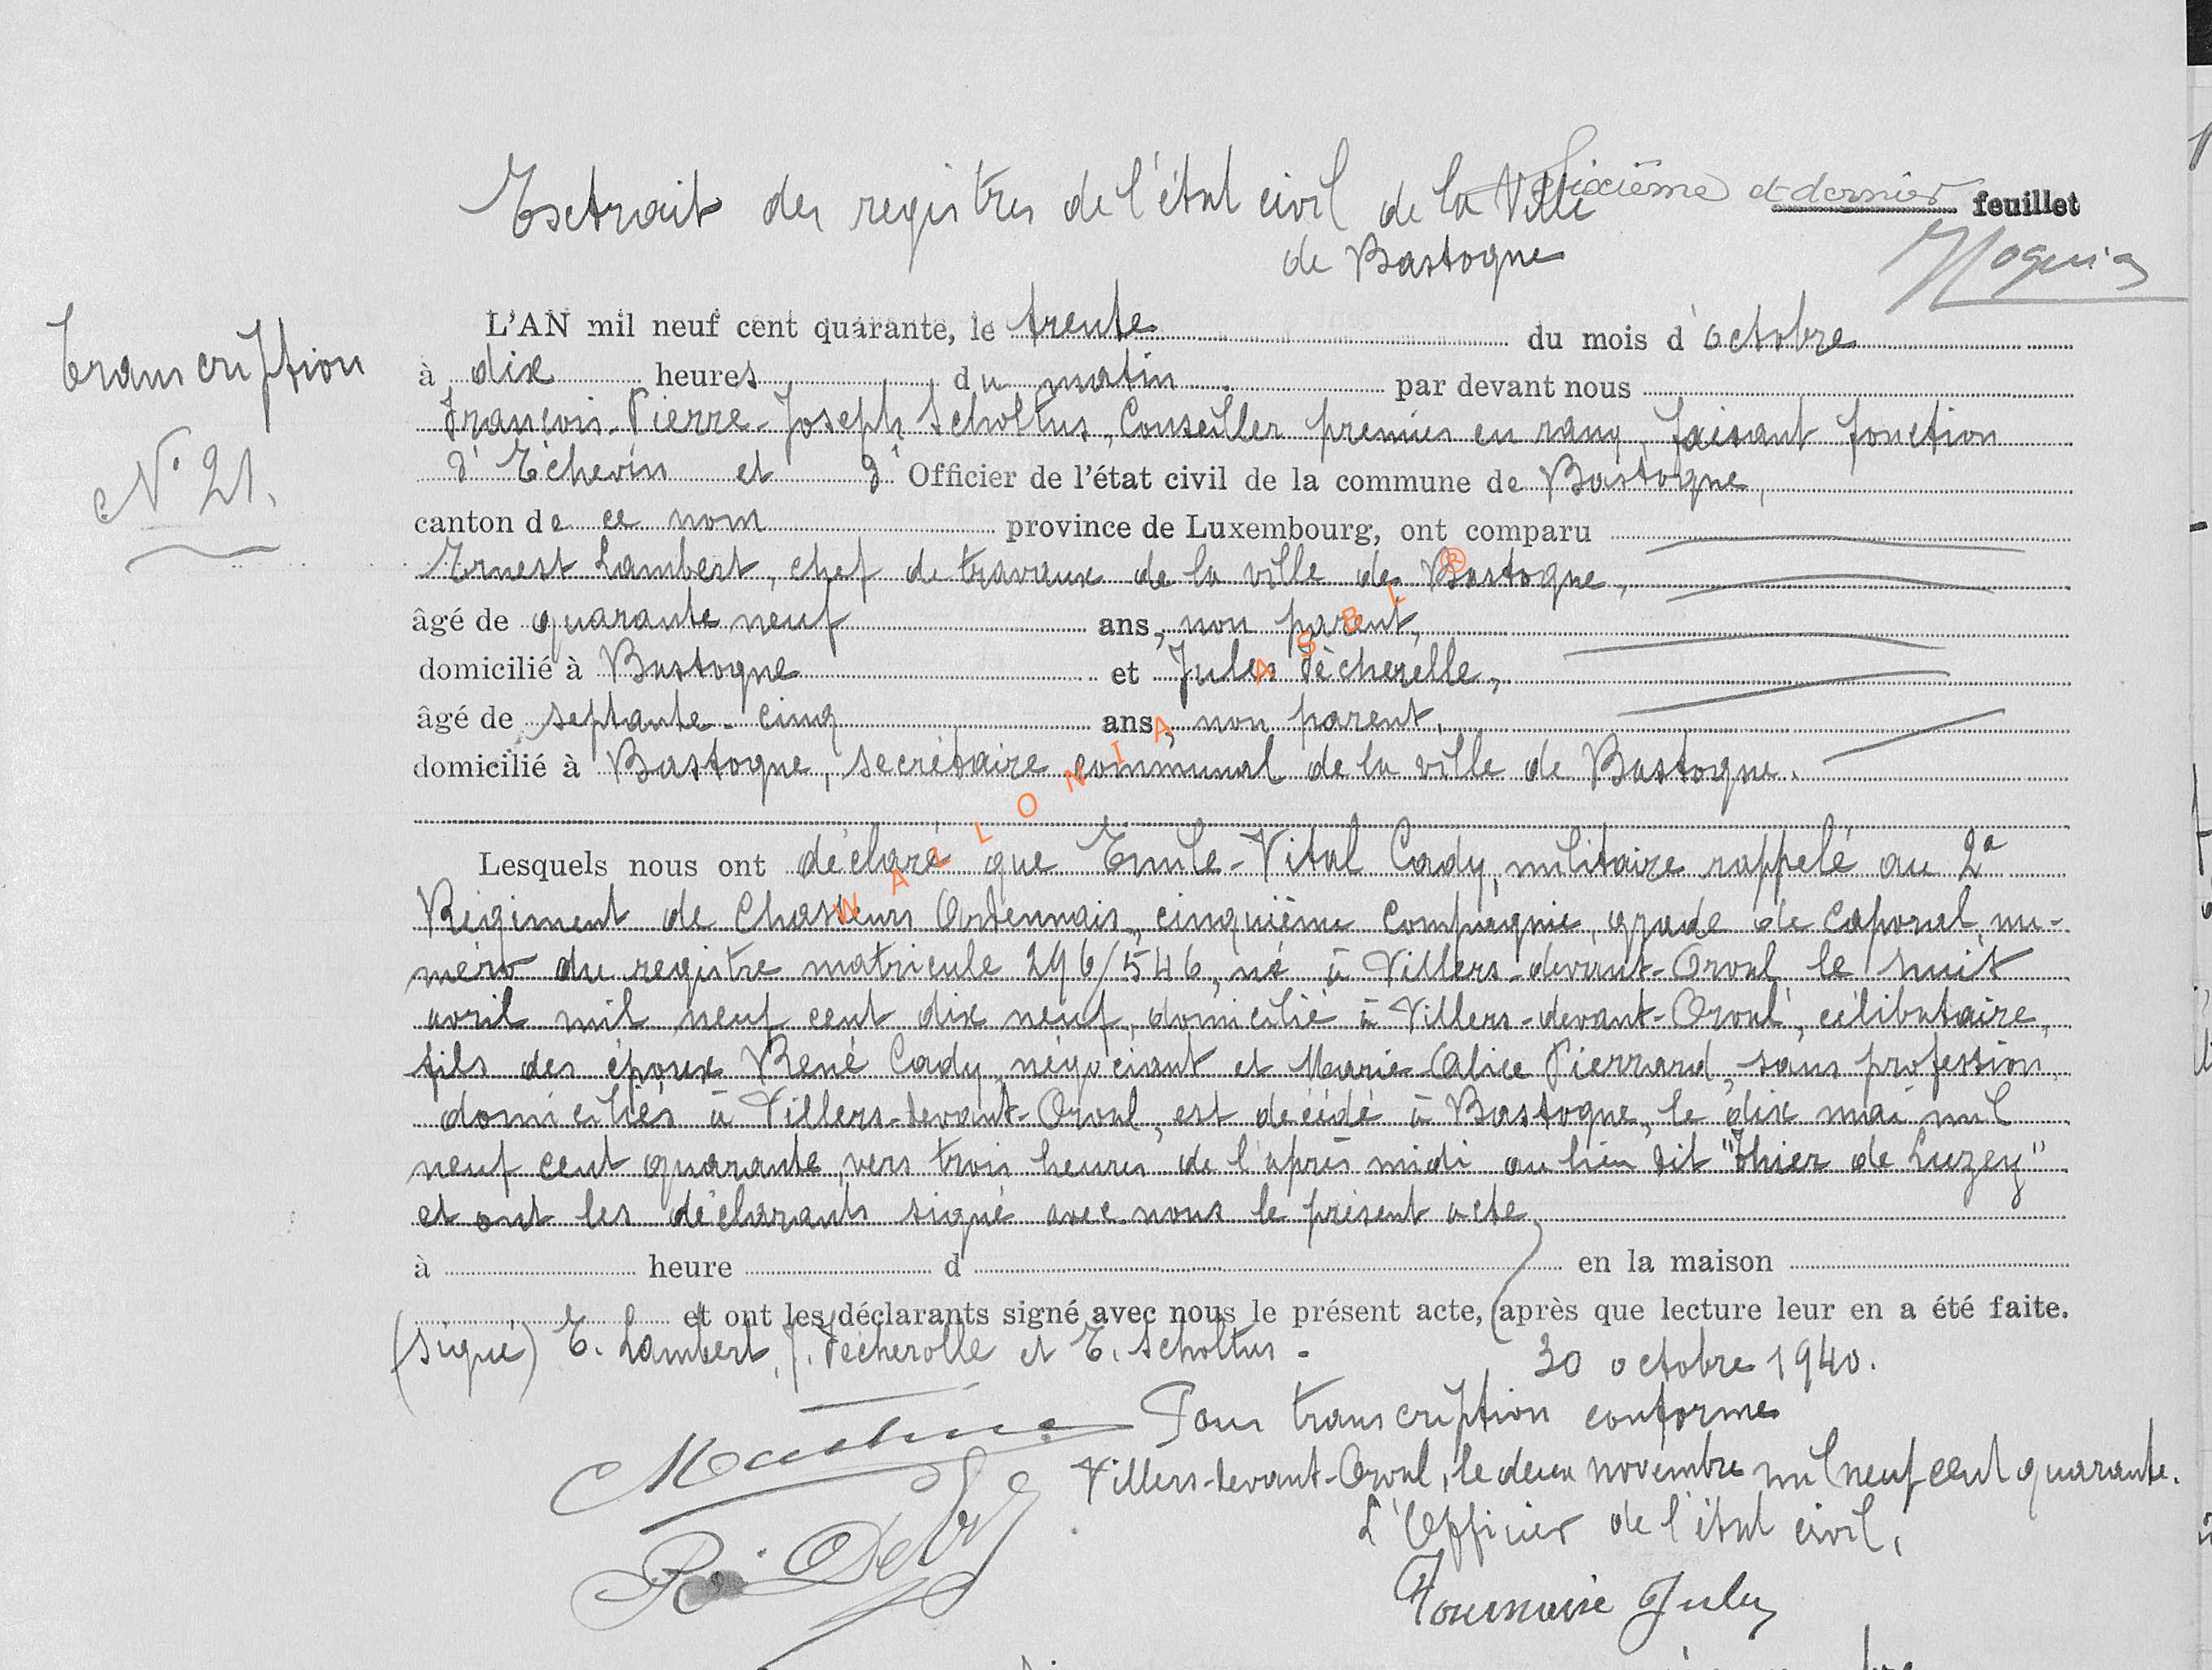 sixième et dernier feuillet
Extrait des registres de l'état civil de la Ville
de Bastogne
L'AN mil neuf cent quarante, le trente du mois d'octobre
Transcription
N° 21.
à dix heures du matin par devant nous
François-Pierre-Joseph Scholtus, Conseiller premier en rang, faisant fonction
d'Echevin et d'Officier de l'état civil de la commune de Bastogne,
canton de ce nom province de Luxembourg, ont comparu
Ernest Lambert, chef de travaux de la ville de Bastogne,
âgé de quarante neuf ans, non parent,
domicilié à Bastogne et Jules Fècherolle,
âgé de septante-cinq ans, non parent,
domicilié à Bastogne, secrétaire communal de la ville de Bastogne.
Lesquels nous ont déclaré que Emile-Vital Cady, militaire rappelé au 2e
Régiment de Chasseurs Ardennais, cinquième Compagnie, grade de Caporal, nu-
méro du registre matricule 296/546, né à Villers-devant-Orval le huit
avril mil neuf cent dix neuf, domicilié à Villers-devant-Orval, célibataire,
fils des époux René Cady, négociant et Marie-Alice Pierrard, sans profession,
domiciliés à Villers-devant-Orval, est décédé à Bastogne, le dix mai mil
neuf cent quarante, vers trois heures de l'après midi au lieu dit "Thier de Luzey"
et ont les déclarants signé avec nous le présent acte
à heure d en la maison
et ont les déclarants signé avec nous le présent acte, après que lecture leur en a été faite.
(signé) E. Lambert, J. Fécherolle et E. Scholtus.
30 octobre 1940.
Pour transcription conforme
Villers-devant-Orval, le deux novembre mil neuf cent quarante.
L'Officier de l'état civil,
WALLONIA ASBL ®